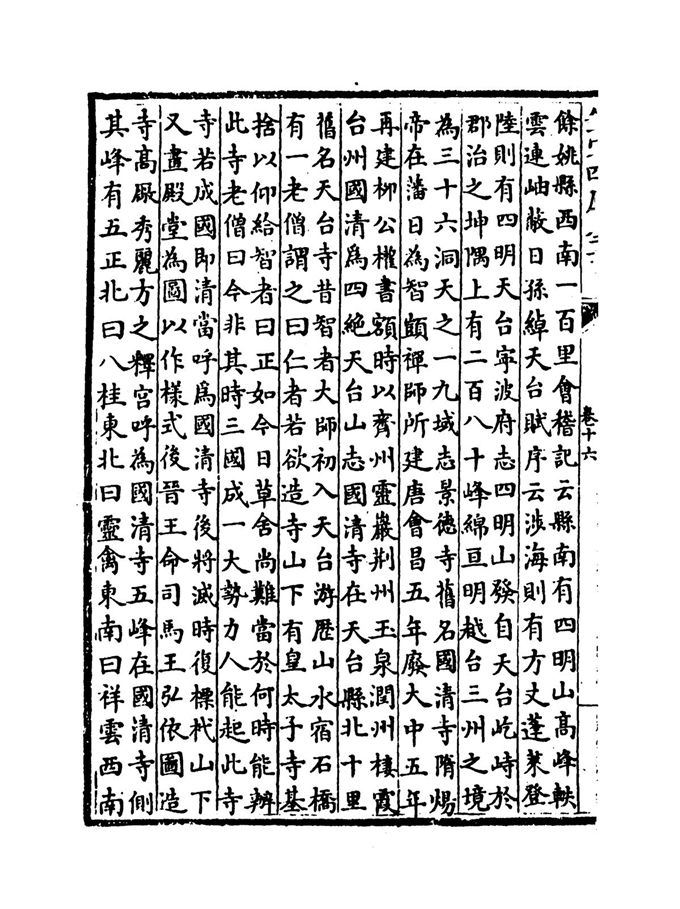 卷十六
餘姚縣西南一百里會稽記云縣南有四明山高峰軼
雲連岫蔽日孫綽天台賦序云涉海則有方丈蓬萊登
陸則有四明天台寧波府志四明山發自天台屹峙於
郡治之坤隅上有二百八十峰綿亘明越台三州之境
為三十六洞天之一九域志景德寺舊名國清寺隋煬
帝在藩日為智顗禪師所建唐會昌五年廢大中五年
再建柳公權書額時以齊州靈巖荆州玉泉潤州棲霞
台州國清爲四絶天台山志國清寺在天台縣北十里
舊名天台寺昔智者大師初入天台游歴山水宿石橋
有一老僧謂之曰仁者若欲造寺山下有皇太子寺基
捨以仰給智者曰正如今日草舍尚難當於何時能辦
此寺老僧曰今非其時三國成一大勢力人能起此寺
寺若成國即清當呼爲國清寺後將滅時復標杙山下
又畫殿堂為圖以作樣式後晉王命司馬王弘依圖造
寺高厰秀麗方之釋宫呼為國清寺五峰在國清寺側
其峰有五正北曰八桂東北曰靈禽東南曰祥雲西南